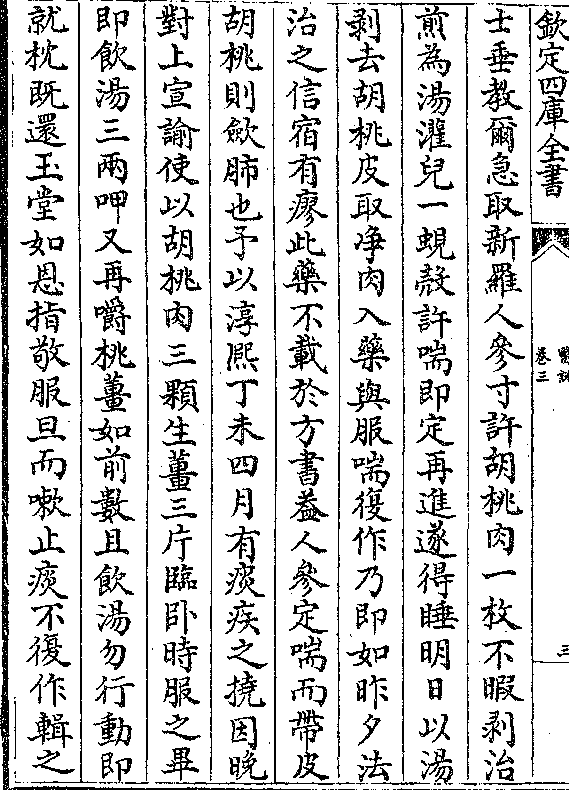 欽定四庫全書
醫說
卷三
三
士垂教爾急取新羅人參寸許胡桃肉一枚不暇剥治
煎為湯灌兒一蜆殼許喘即定再進遂得睡明日以湯
剥去胡桃皮取净肉入藥與服喘復作乃即如昨夕法
治之信宿有瘳此藥不載於方書葢人參定喘而帶皮
胡桃則歛肺也予以淳熈丁未四月有痰疾之撓因晚
對上宣諭使以胡桃肉三顆生薑三片臨卧時服之畢
即飲湯三兩呷又再嚼桃薑如前數且飲湯勿行動即
就枕既還玉堂如恩指敬服旦而嗽止痰不復作輯之